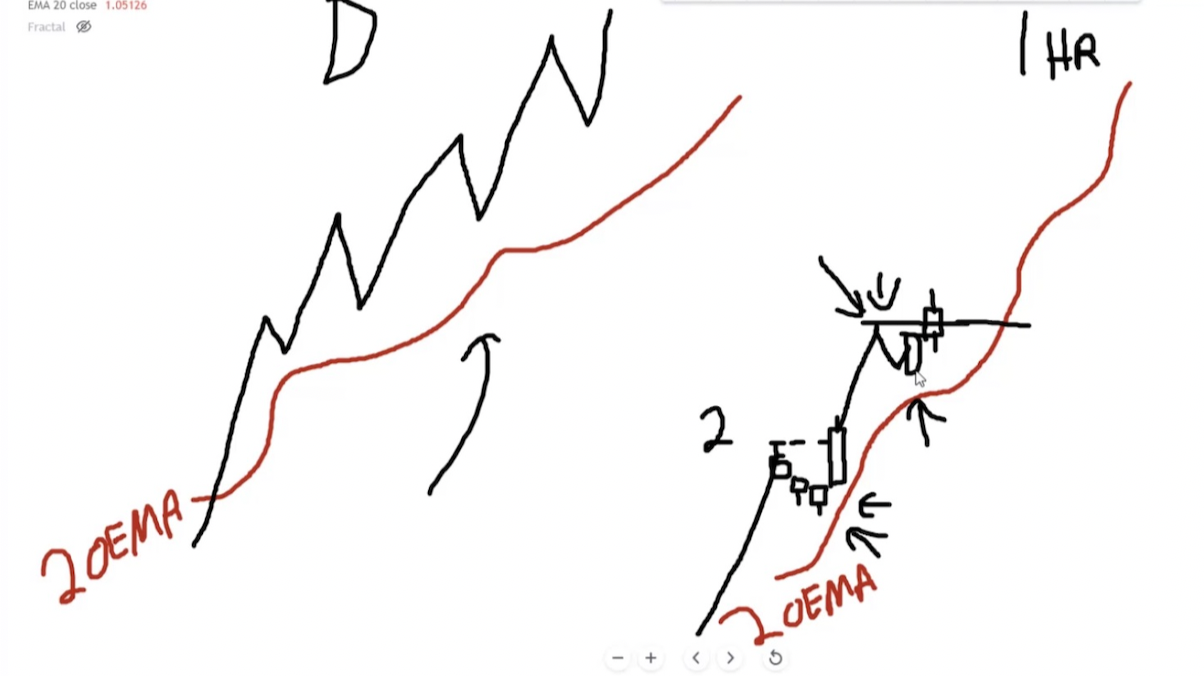 EMA 20 close 1.05126
Fractal
D
1 HR
2
20EMA
20EMA